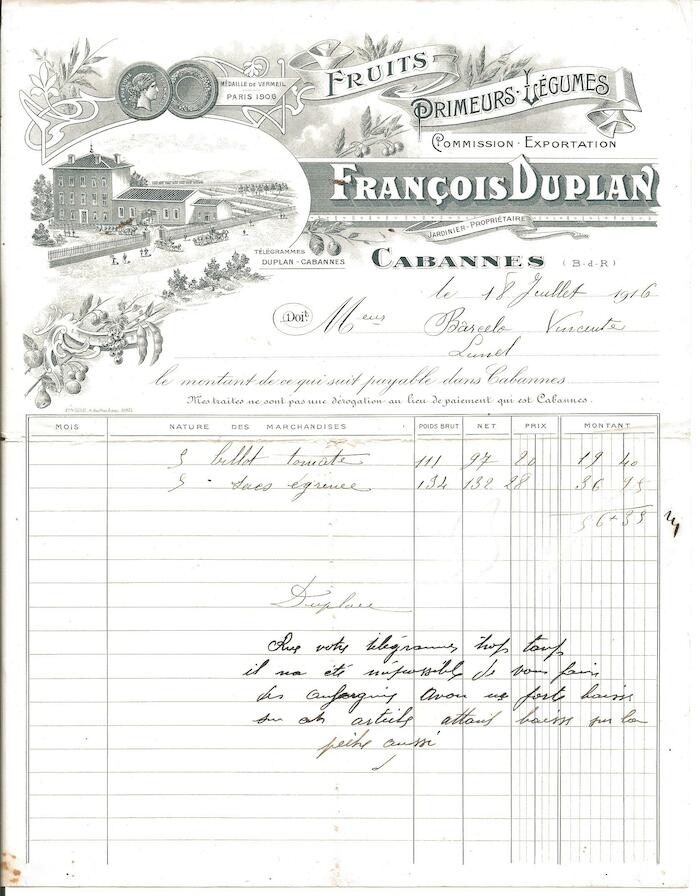 MÉDAILLE DE VERMEIL
PARIS 1906
FRUITS
PRIMEURS · LÉGUMES
COMMISSION · EXPORTATION
FRANÇOIS DUPLAN
JARDINIER-PROPRIÉTAIRE
TÉLÉGRAMMES
DUPLAN-CABANNES
CABANNES (B-d-R)
le 18 Juillet 1916
Doit Meus Barcelo Vincente
Lunel
le montant de ce qui suit payable dans Cabannes
Mes traites ne sont pas une dérogation au lieu de paiement qui est Cabannes.
MOIS NATURE DES MARCHANDISES POIDS BRUT NET PRIX MONTANT
5 billot tomate 111 97 20 19 40
5 sacs 134 132 28 36 95
56 + 35
Duplan
votre télégramme trop tard
il na été impossible de vous faire
des avons une forte baisse
sur articles baisse sur la
aussi